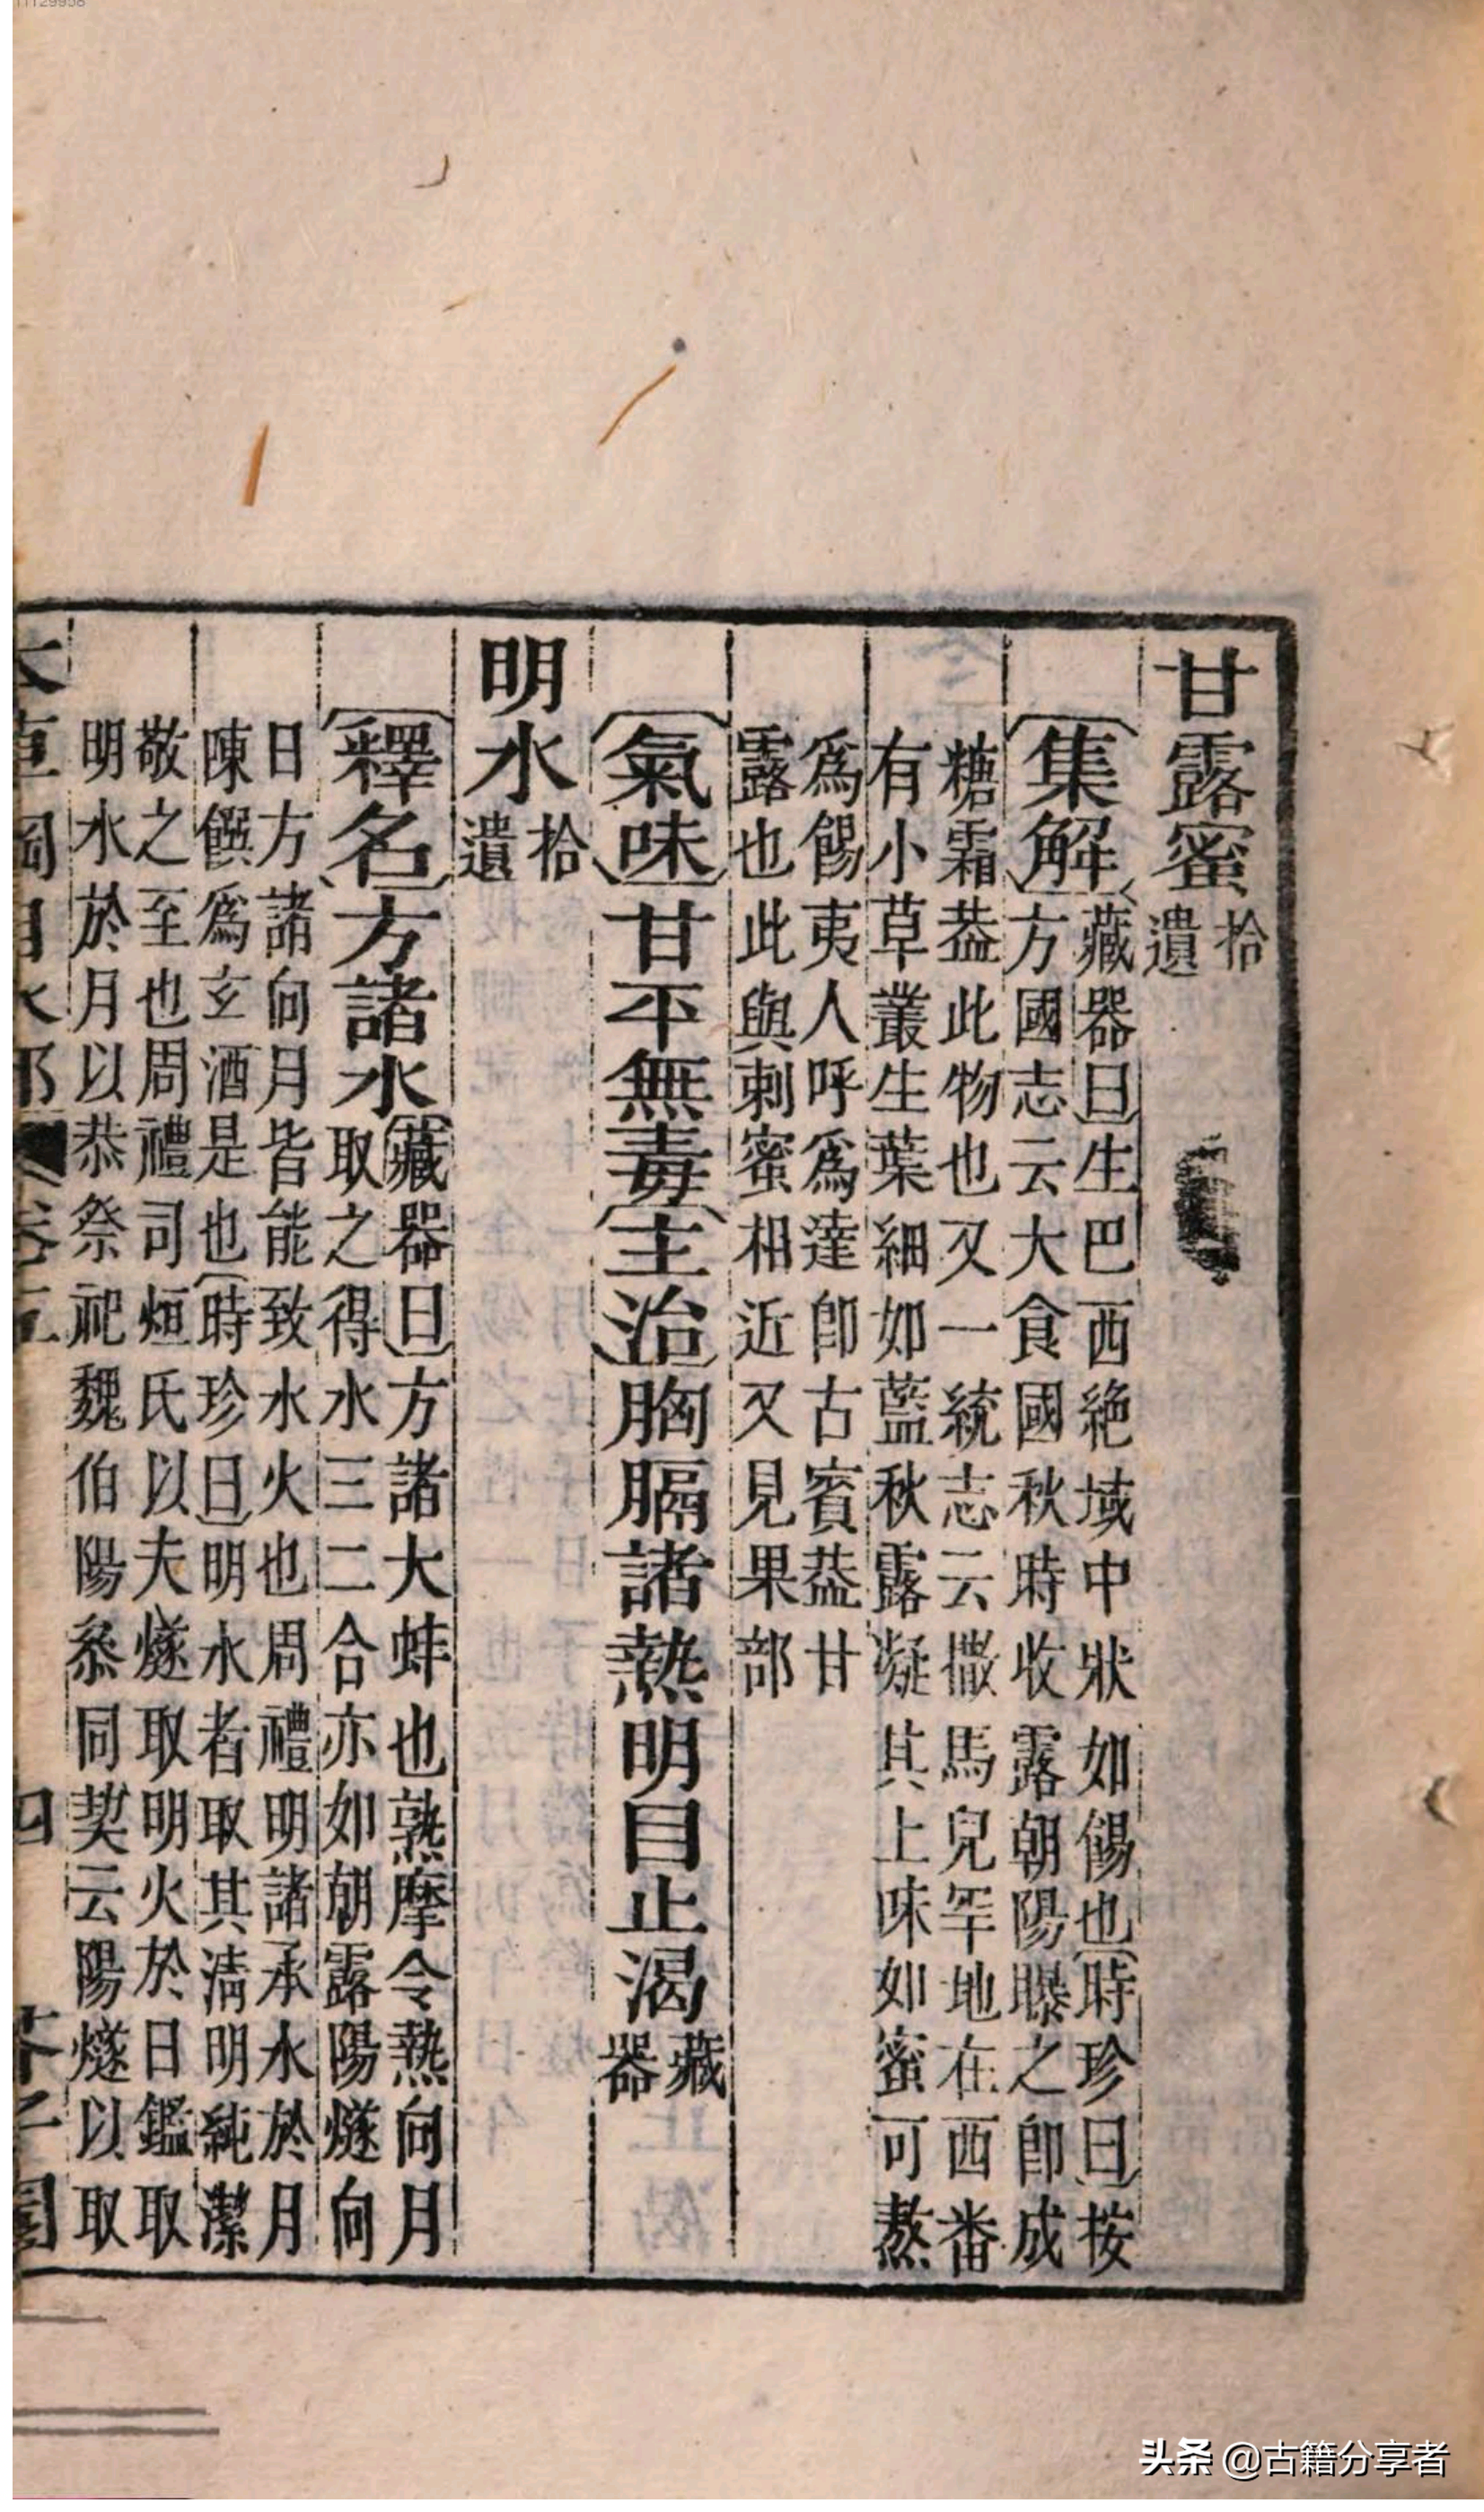 11129958
甘露蜜拾遺
集解藏器曰生巴西絶域中狀如餳也時珍曰按
方國志云大食國秋時收露朝陽曝之卽成
糖霜葢此物也又一統志云撒馬兒罕地在西番
有小草叢生葉細如藍秋露凝其上味如蜜可熬
爲餳夷人呼爲達卽古賓葢甘
露也此與刺蜜相近又見果部
氣味甘平無毒主治胸膈諸熱明目止渴藏器
明水拾遺
釋名方諸水藏器曰方諸大蚌也熟摩令熱向月
取之得水三二合亦如朝露陽燧向
日方諸向月皆能致水火也周禮明諸承水於月
陳饌爲玄酒是也時珍曰明水者取其淸明純潔
敬之至也周禮司烜氏以夫燧取明火於日鑑取
明水於月以恭祭祀魏伯陽叅同契云陽燧以取
卷五
四
頭条 @古籍分享者